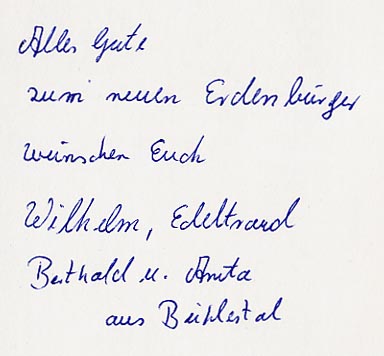 Alles Gute
zum neuen Erdenbürger
wünschen Euch
Wilhelm, Edeltraud
Berthold u. Anita
aus Bühlertal